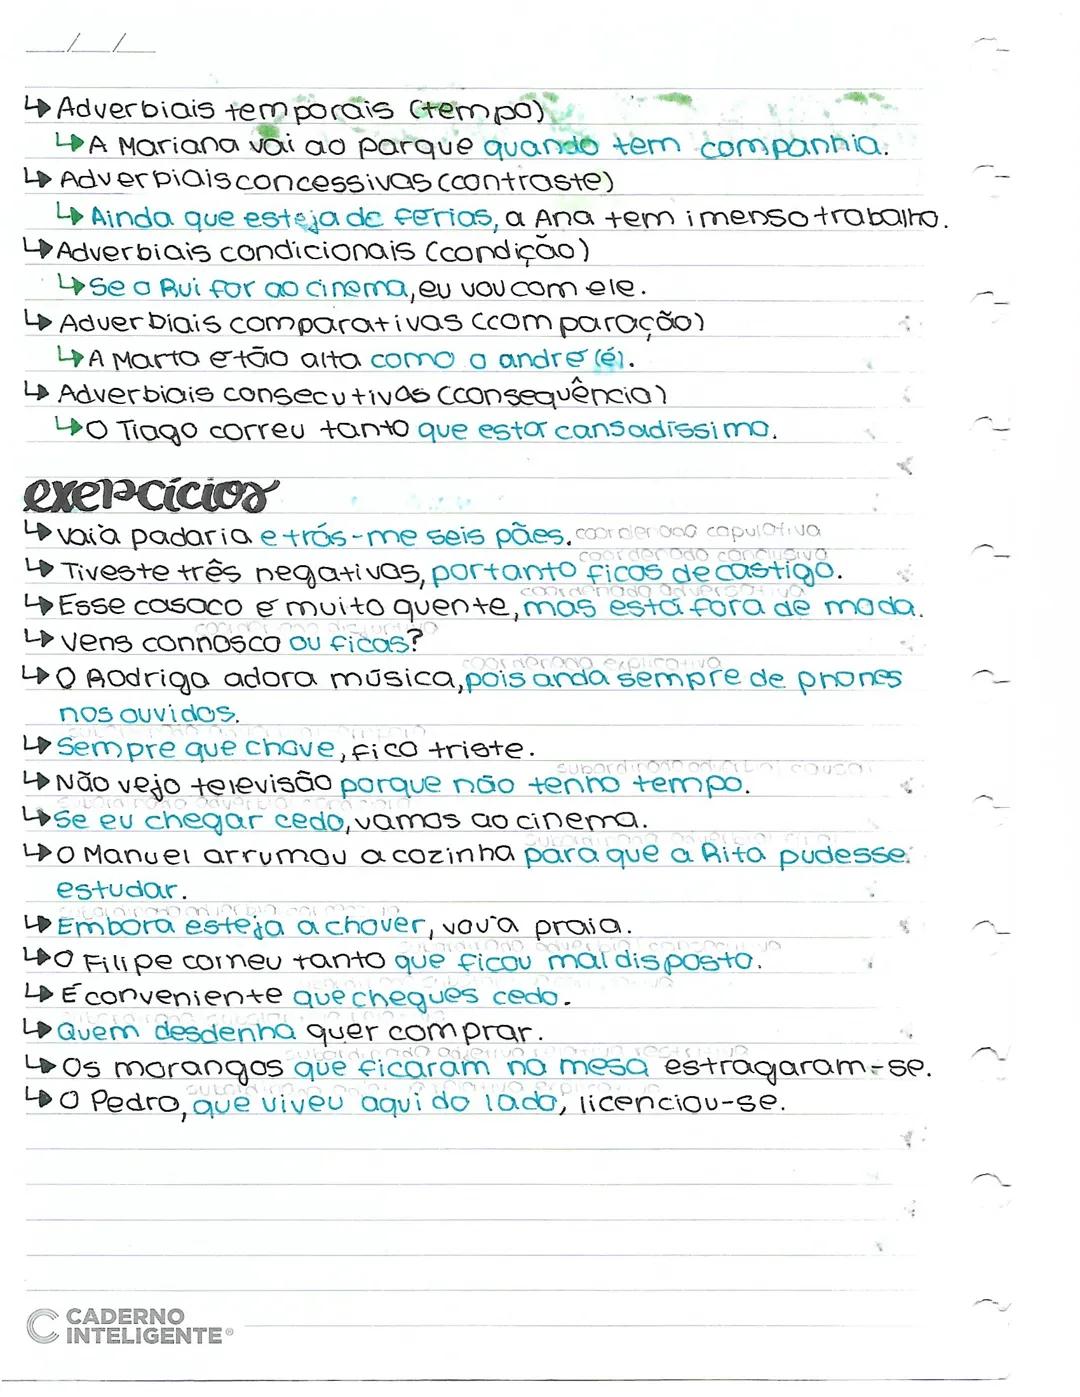 ↳ Adverbiais temporais (tempo)
↳ A Mariana vai ao parque quando tem companhia.
↳ Adverbiais concessivas (contraste)
↳ Ainda que esteja de ferias, a Ana tem imenso trabalho.
↳ Adverbiais condicionais (condição)
↳ Se o Rui for ao cinema, eu vou com ele.
↳ Adverbiais comparativas (comparação)
↳ A Marta é tão alta como o andre (é).
↳ Adverbiais consecutivas (consequência)
↳ O Tiago correu tanto que estar cansadissimo.
exercícios
↳ vai à padaria e trás-me seis pães. coordenada copulativa
coordenada conclusiva
↳ Tiveste três negativas, portanto ficas de castigo.
coordenada adversativa
↳ Esse casaco é muito quente, mas está fora de moda.
coordenada disjuntiva
↳ vens connosco ou ficas?
coordenada explicativa
↳ O Rodrigo adora música, pois anda sempre de phones
nos ouvidos.
↳ Sempre que chove, fico triste.
subordinada adverbial causal
↳ Não vejo televisão porque não tenho tempo.
↳ Se eu chegar cedo, vamos ao cinema.
subordinada adverbial final
↳ O Manuel arrumou a cozinha para que a Rita pudesse
estudar.
↳ Embora esteja a chover, vou à praia.
subordinada adverbial consecutiva
↳ O Filipe comeu tanto que ficou mal disposto.
↳ É conveniente que chegues cedo.
↳ Quem desdenha quer comprar.
subordinada adjetiva relativa restritiva
↳ Os morangos que ficaram na mesa estragaram-se.
↳ O Pedro, que viveu aqui do lado, licenciou-se.
CADERNO
INTELIGENTE®